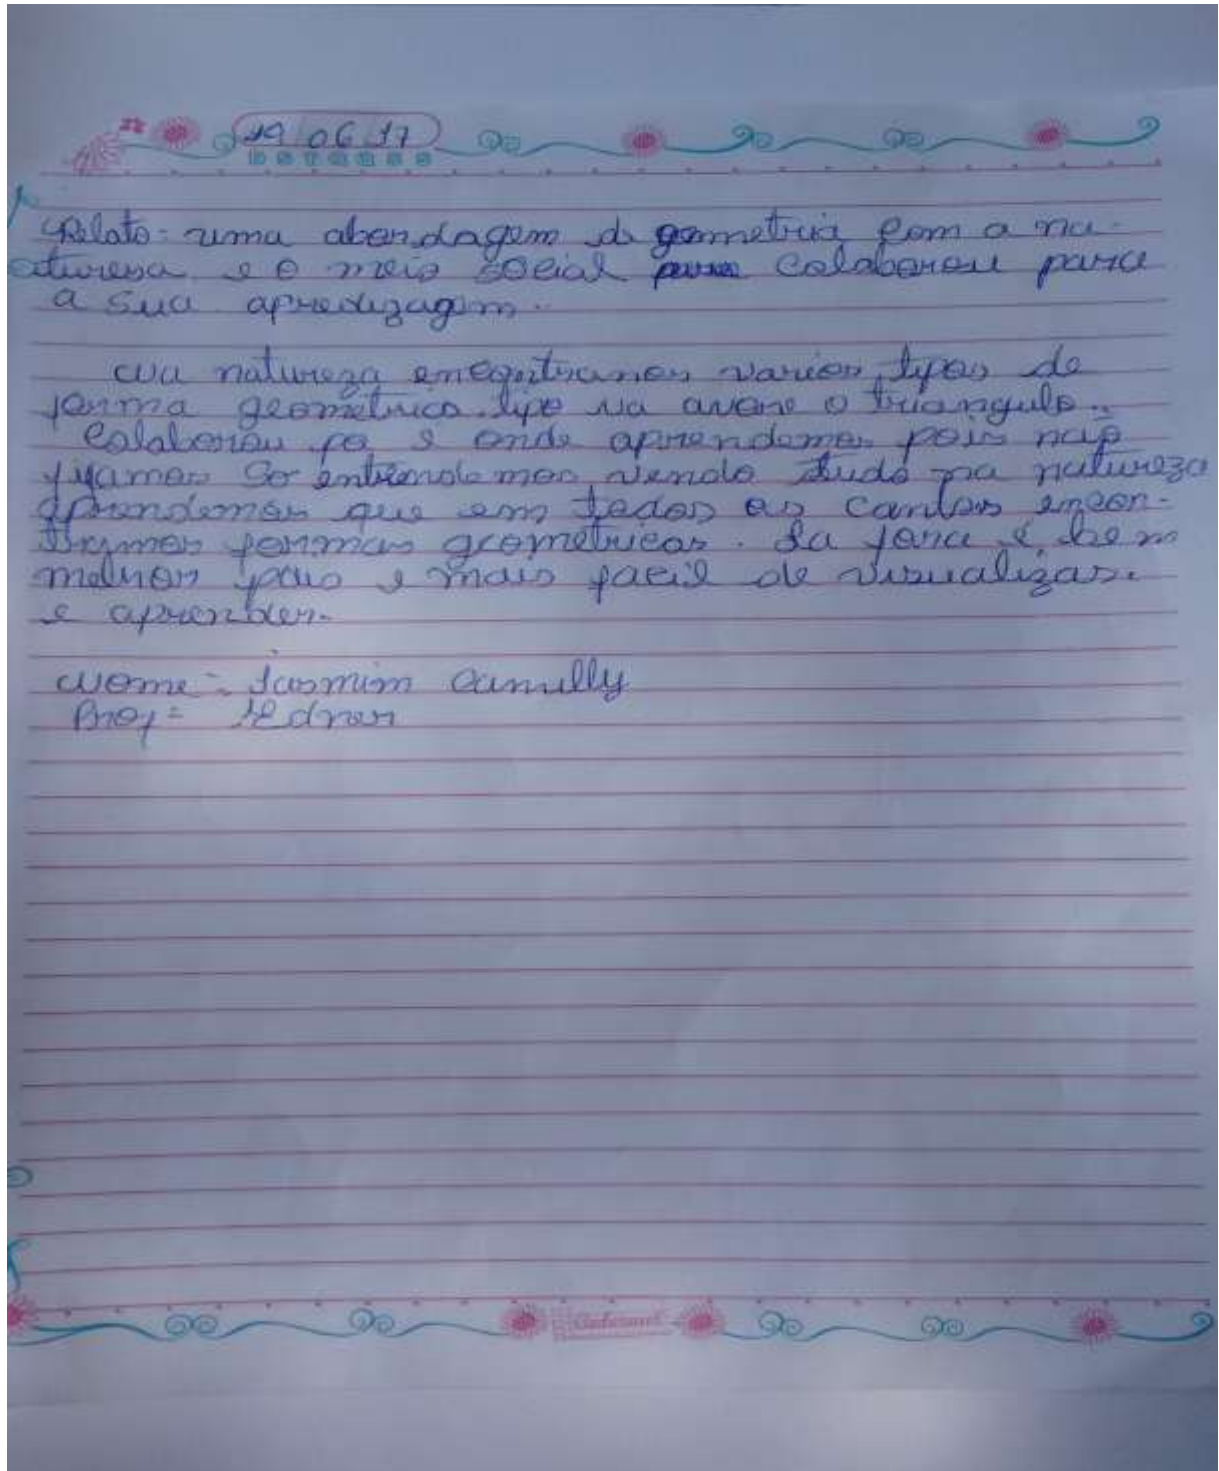 19 06 17
D S T Q Q S S
Relato: uma abordagem da geometria com a na-
atureza e o meio social para colaborou para
a sua apredizagem.
Na natureza encontramos varios tipos de
forma geometrica tipo na arvore o triangulo..
Colaborou e onde aprendemos pois nap
fijamos so entrendemos vendo tudo na natureza
aprendemos que em todos os cantos encon-
tramos formas geometricas. La fora é bem
melhor pois e mais facil de visualizar.
e aprender.
Nome = Jasmim Camilly
Prof = Edner